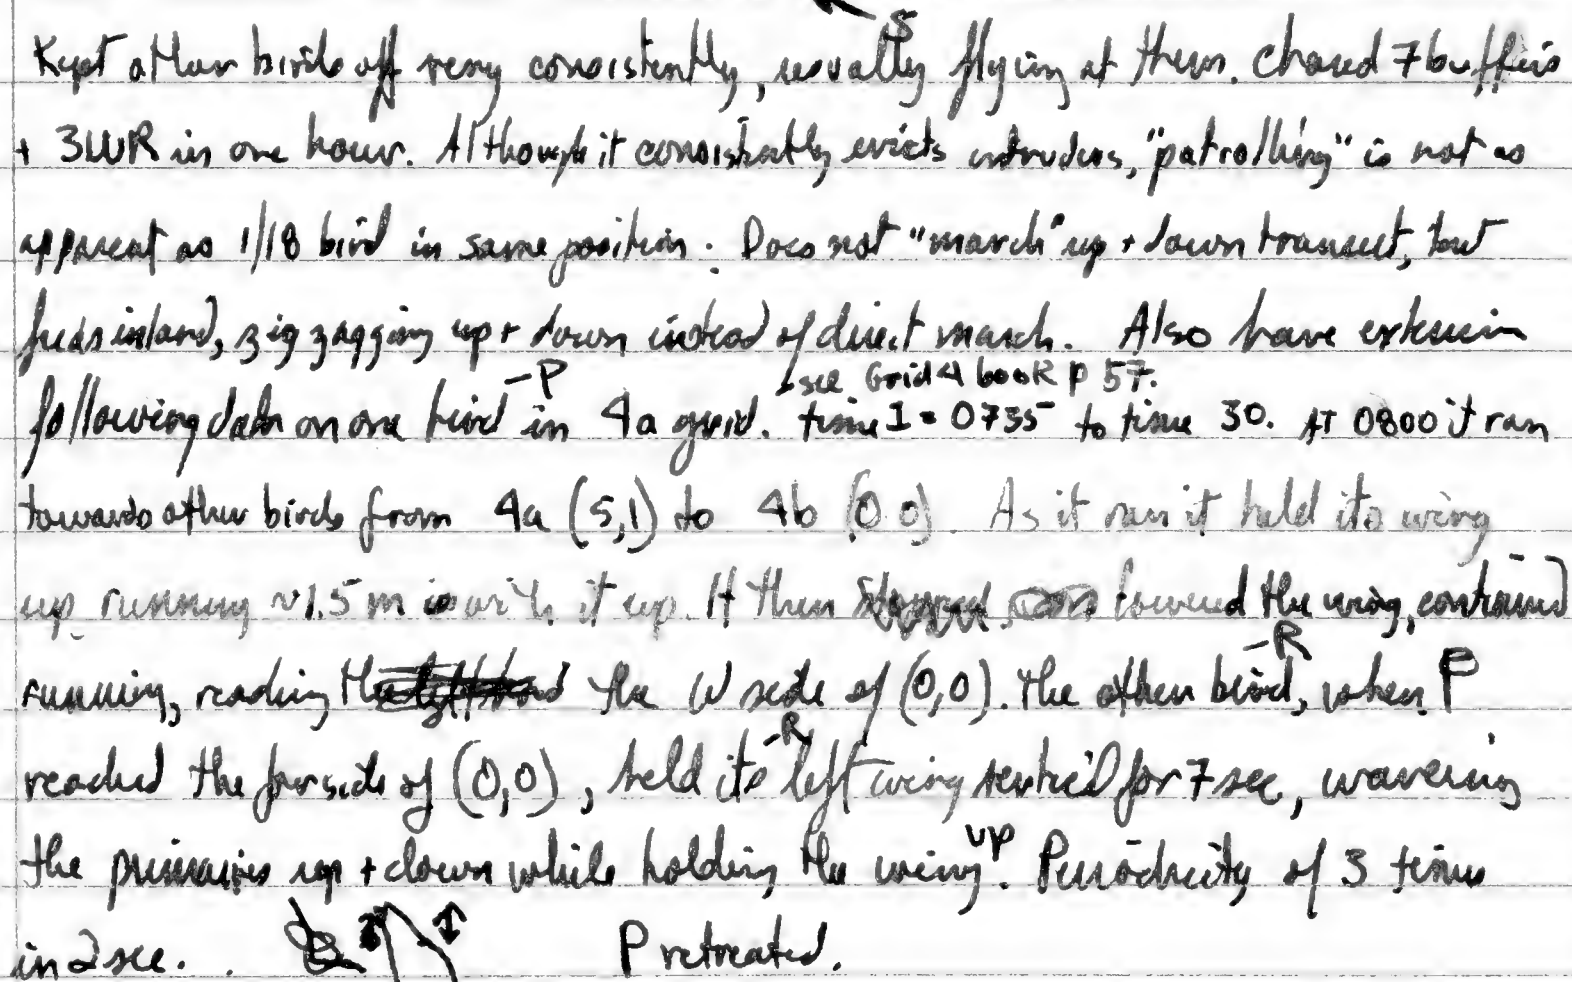 S
Kept other birds off very consistently, usually flying at them. Chased 7 buffies
+ 3WR in one hour. Although it consistently evicts intruders, "patrolling" is not as
apparent as 1/18 bird in same position. Does not "march" up + down transect, but
feeds inland, zig zagging up + down instead of direct march. Also have extensive
-P see Grid 4 book p 57.
following data on one bird in 4a grid. time 1 = 0735 to time 30. AT 0800 it ran
towards other birds from 4a (5,1) to 4b (0 0). As it ran it held its wing
up, running ~1.5 m with it up. It then lowered the wing, continued
-R
running, reaching the W side of (0,0). The other bird, when P
-R
reached the far side of (0,0), held its left wing vertical for 7 sec, wavering
up
the primaries up + down while holding the wing. Periodicity of 3 times
in 2 sec. P retreated.